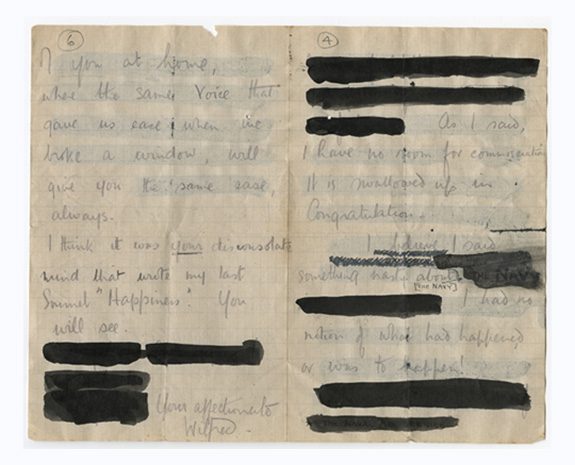 6
I you at home,
where the same Voice that
gave us ease when we
broke a window, will
give you the same ease,
always.
I think it was your disconsolate
mind that wrote my last
Sonnet "Happiness". You
will see.
Your affectionate
Wilfred.
4
As I said,
I have no room for commiseration
It is swallowed up in
Congratulation.
I believe I said
something nasty about THE NAVY
[THE NAVY]
I had no
notion of what had happened
or was to happen!